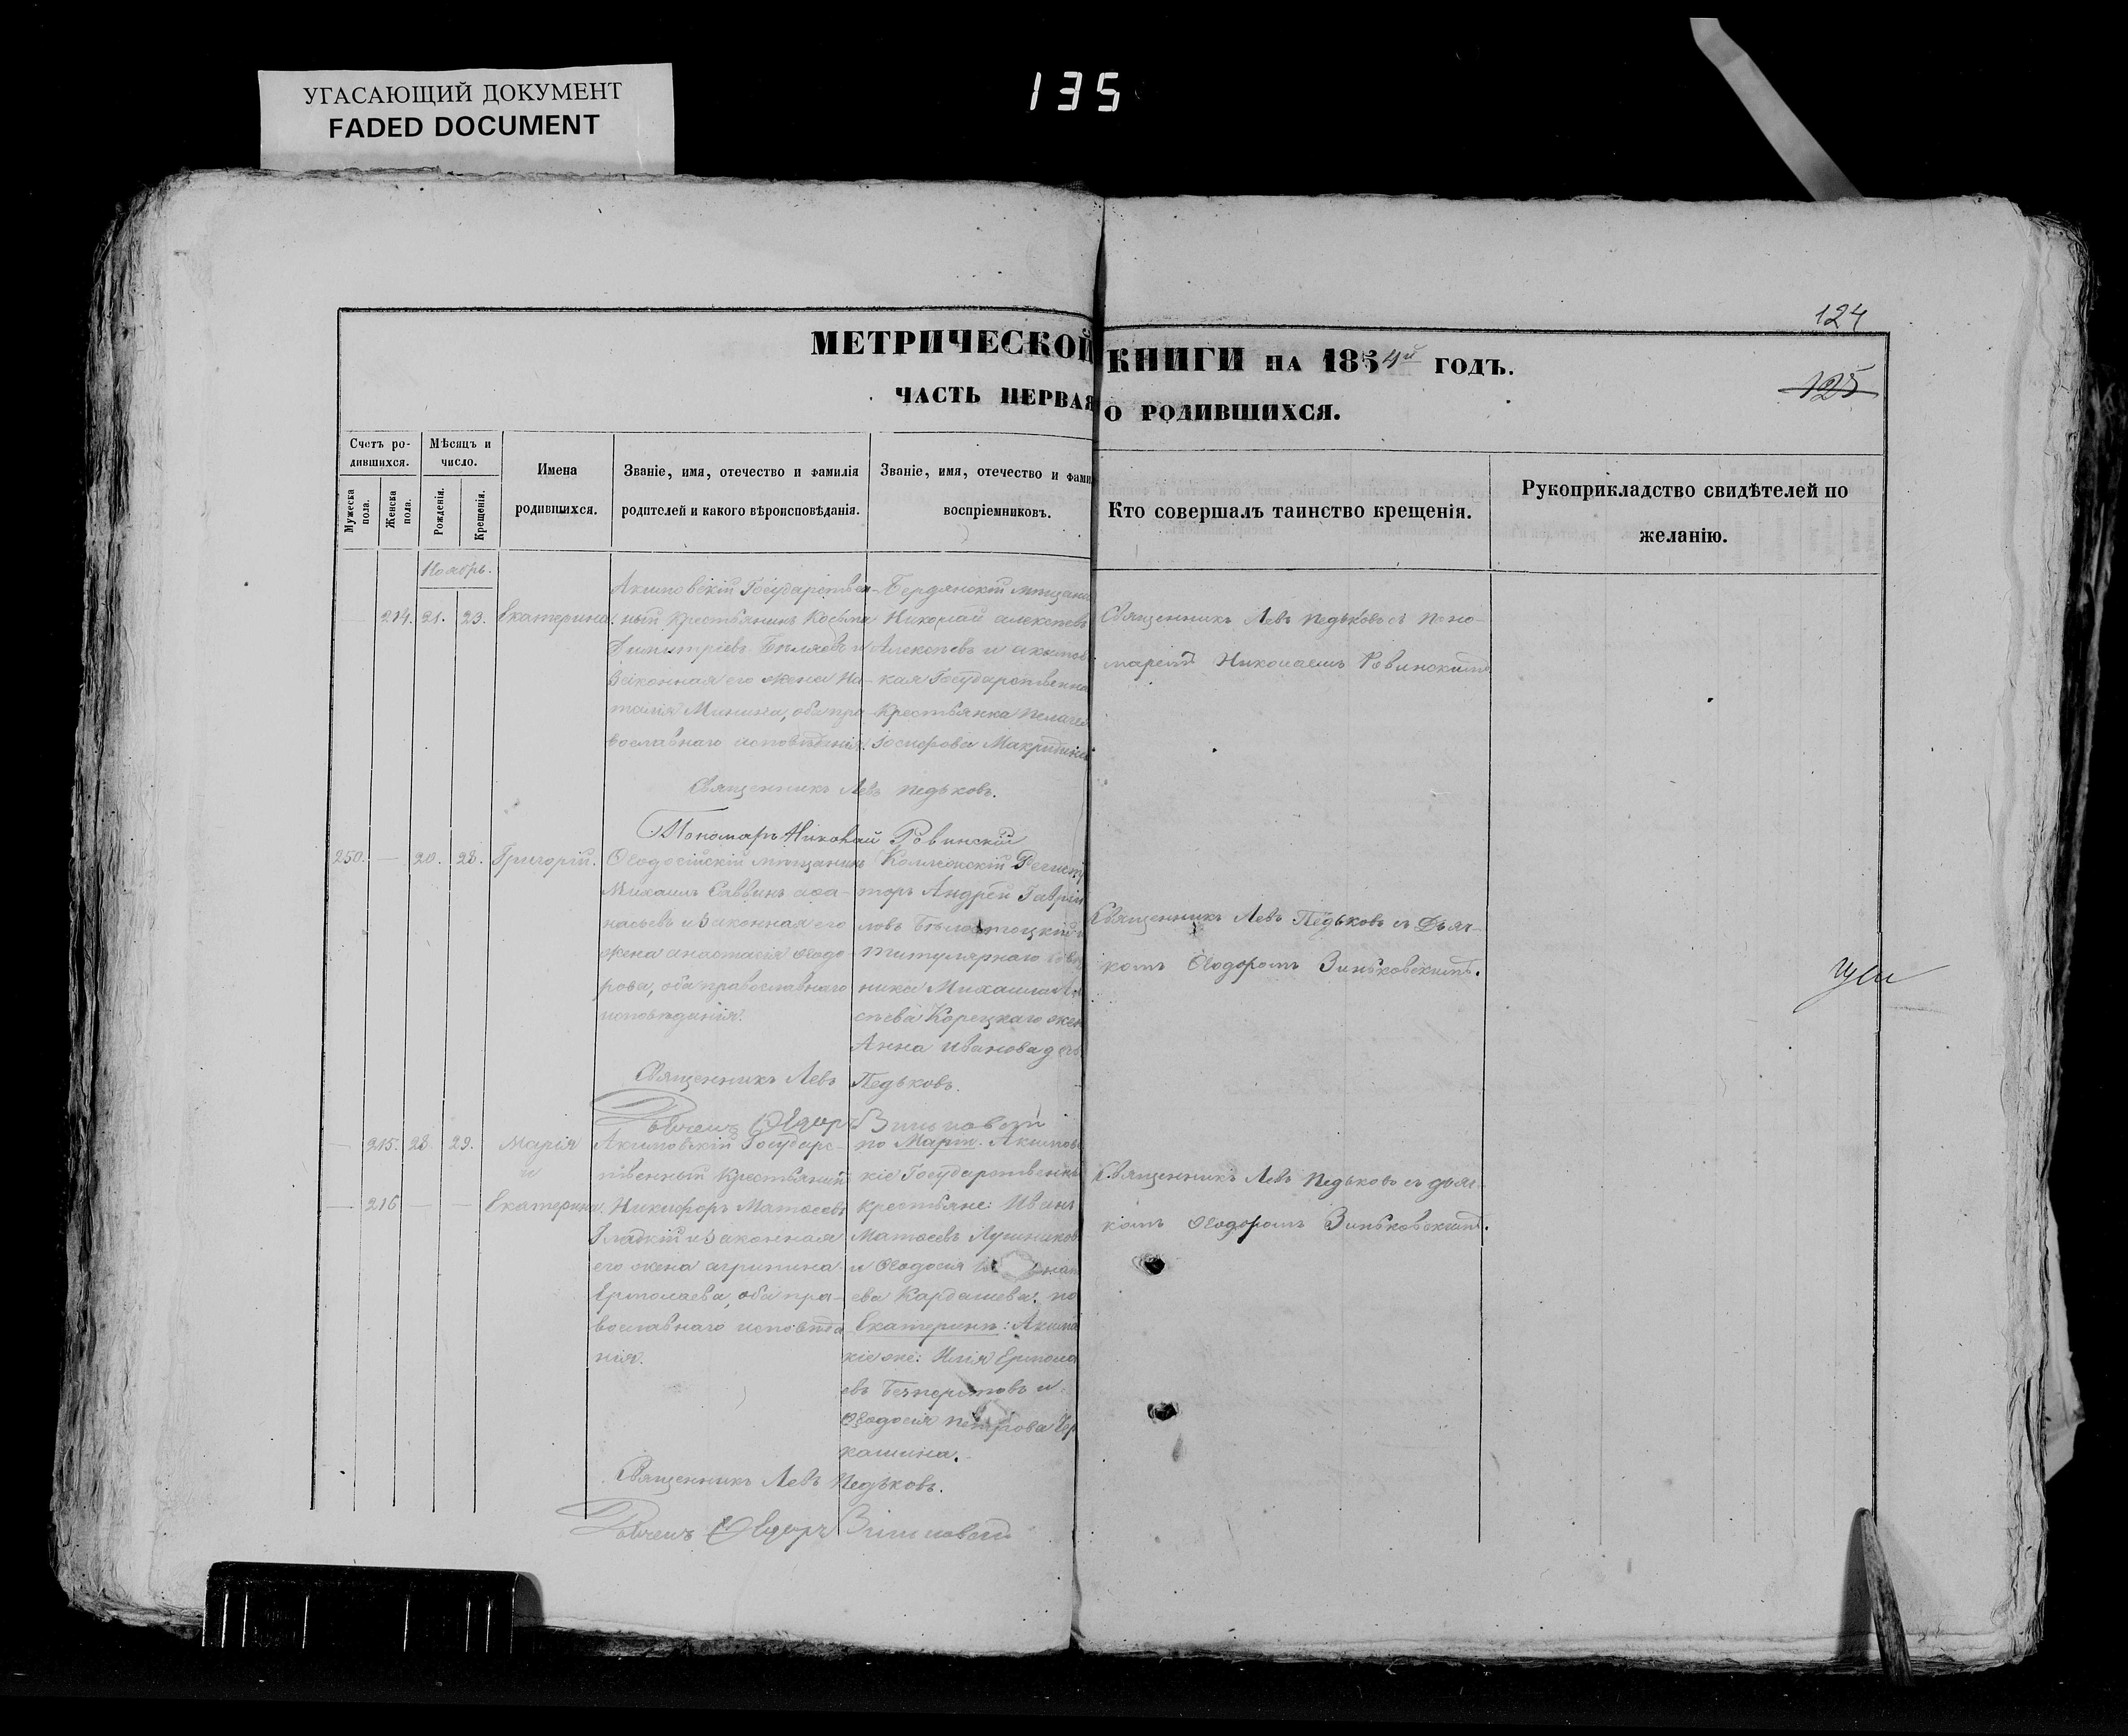 УГАСАЮЩИЙ ДОКУМЕНТ
FADED DOCUMENT
135
124
МЕТРИЧЕСКОЙ КНИГИ НА 1854й ГОДЪ.
125
ЧАСТЬ ПЕРВАЯ О РОДИВШИХСЯ.
Счетъ ро-
дившихся.
Мужеска пола.
Женска пола.
Мѣсяцъ и
число.
Рожденія.
Крещенія.
Имена
родившихся.
Званіе, имя, отечество и фамилія
родителей и какого вѣроисповѣданія.
Званіе, имя, отечество и фами
воспріемниковъ.
Кто совершалъ таинство крещенія.
Рукоприкладство свидѣтелей по
желанію.
Ноябрь.
214. 21. 23. Екатерина.
Акимовскій Государствен-
ный Крестьянинъ Косьма
Димитріевъ Бѣляевъ и
Законная его жена На-
талія Минина, оба пра-
вославнаго исповѣданія.
Бердянскій мѣщани
Николай Алексѣевъ
Алексѣевъ и Акимов
кая Государственна
Крестьянка Пелагея
Іосифова Макридина
Священникъ Левъ Педьковъ съ Поно-
маремъ Николаемъ Ровинскимъ
Священникъ Левъ Педьковъ.
Пономарь Николай Ровинскій
250. — 20. 28. Григорій.
Ѳеодосійскій мѣщанинъ
Михаилъ Саввинъ Афа-
насьевъ и Законная его
жена Анастасія Ѳеодо-
рова, оба православнаго
исповѣданія.
Коллежскій Регистр
торъ Андрей Гаврии
ловъ Бѣлостоцкій и
Титулярнаго
ника Михаила
сѣева Корецкаго жен
Анна Иванова
Священникъ Левъ Педьковъ съ Дьяч-
комъ Ѳеодоромъ Зиньковскимъ.
Священникъ Левъ Педьковъ.
Дьячекъ Ѳедоръ Зиньковскій
— 215. 28 29. Марія
и
— 216 — — Екатерина.
Акимовскій Государс-
твенный Крестьянинъ
Никифоръ Матѳеевъ
Гладкій и Законная
его жена Агрипина
Ермолаева, оба пра-
вославнаго исповѣда
нія.
по Маріи: Акимовс
кіе Государственны
крестьяне: Иванъ
Матѳеевъ Лушников
и Ѳеодосія
ева Кардашева; по
Екатеринѣ: Акимо
кіе же: Илія Ермола
евъ Безперстовъ и
Ѳеодосія Петрова Чер
кашина.
Священникъ Левъ Педьковъ съ дьяч-
комъ Ѳеодоромъ Зиньковскимъ.
Священникъ Левъ Педьковъ.
Дьячекъ Ѳедоръ Зиньковскій